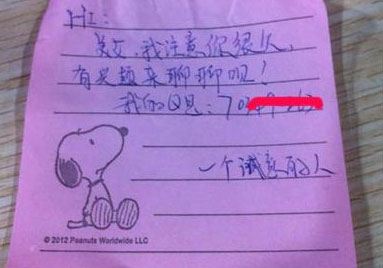 Hi:
美女,我注意你很久,
有兴趣来聊聊呗!
我的Q是:70
一个诚意的人
© 2012 Peanuts Worldwide LLC